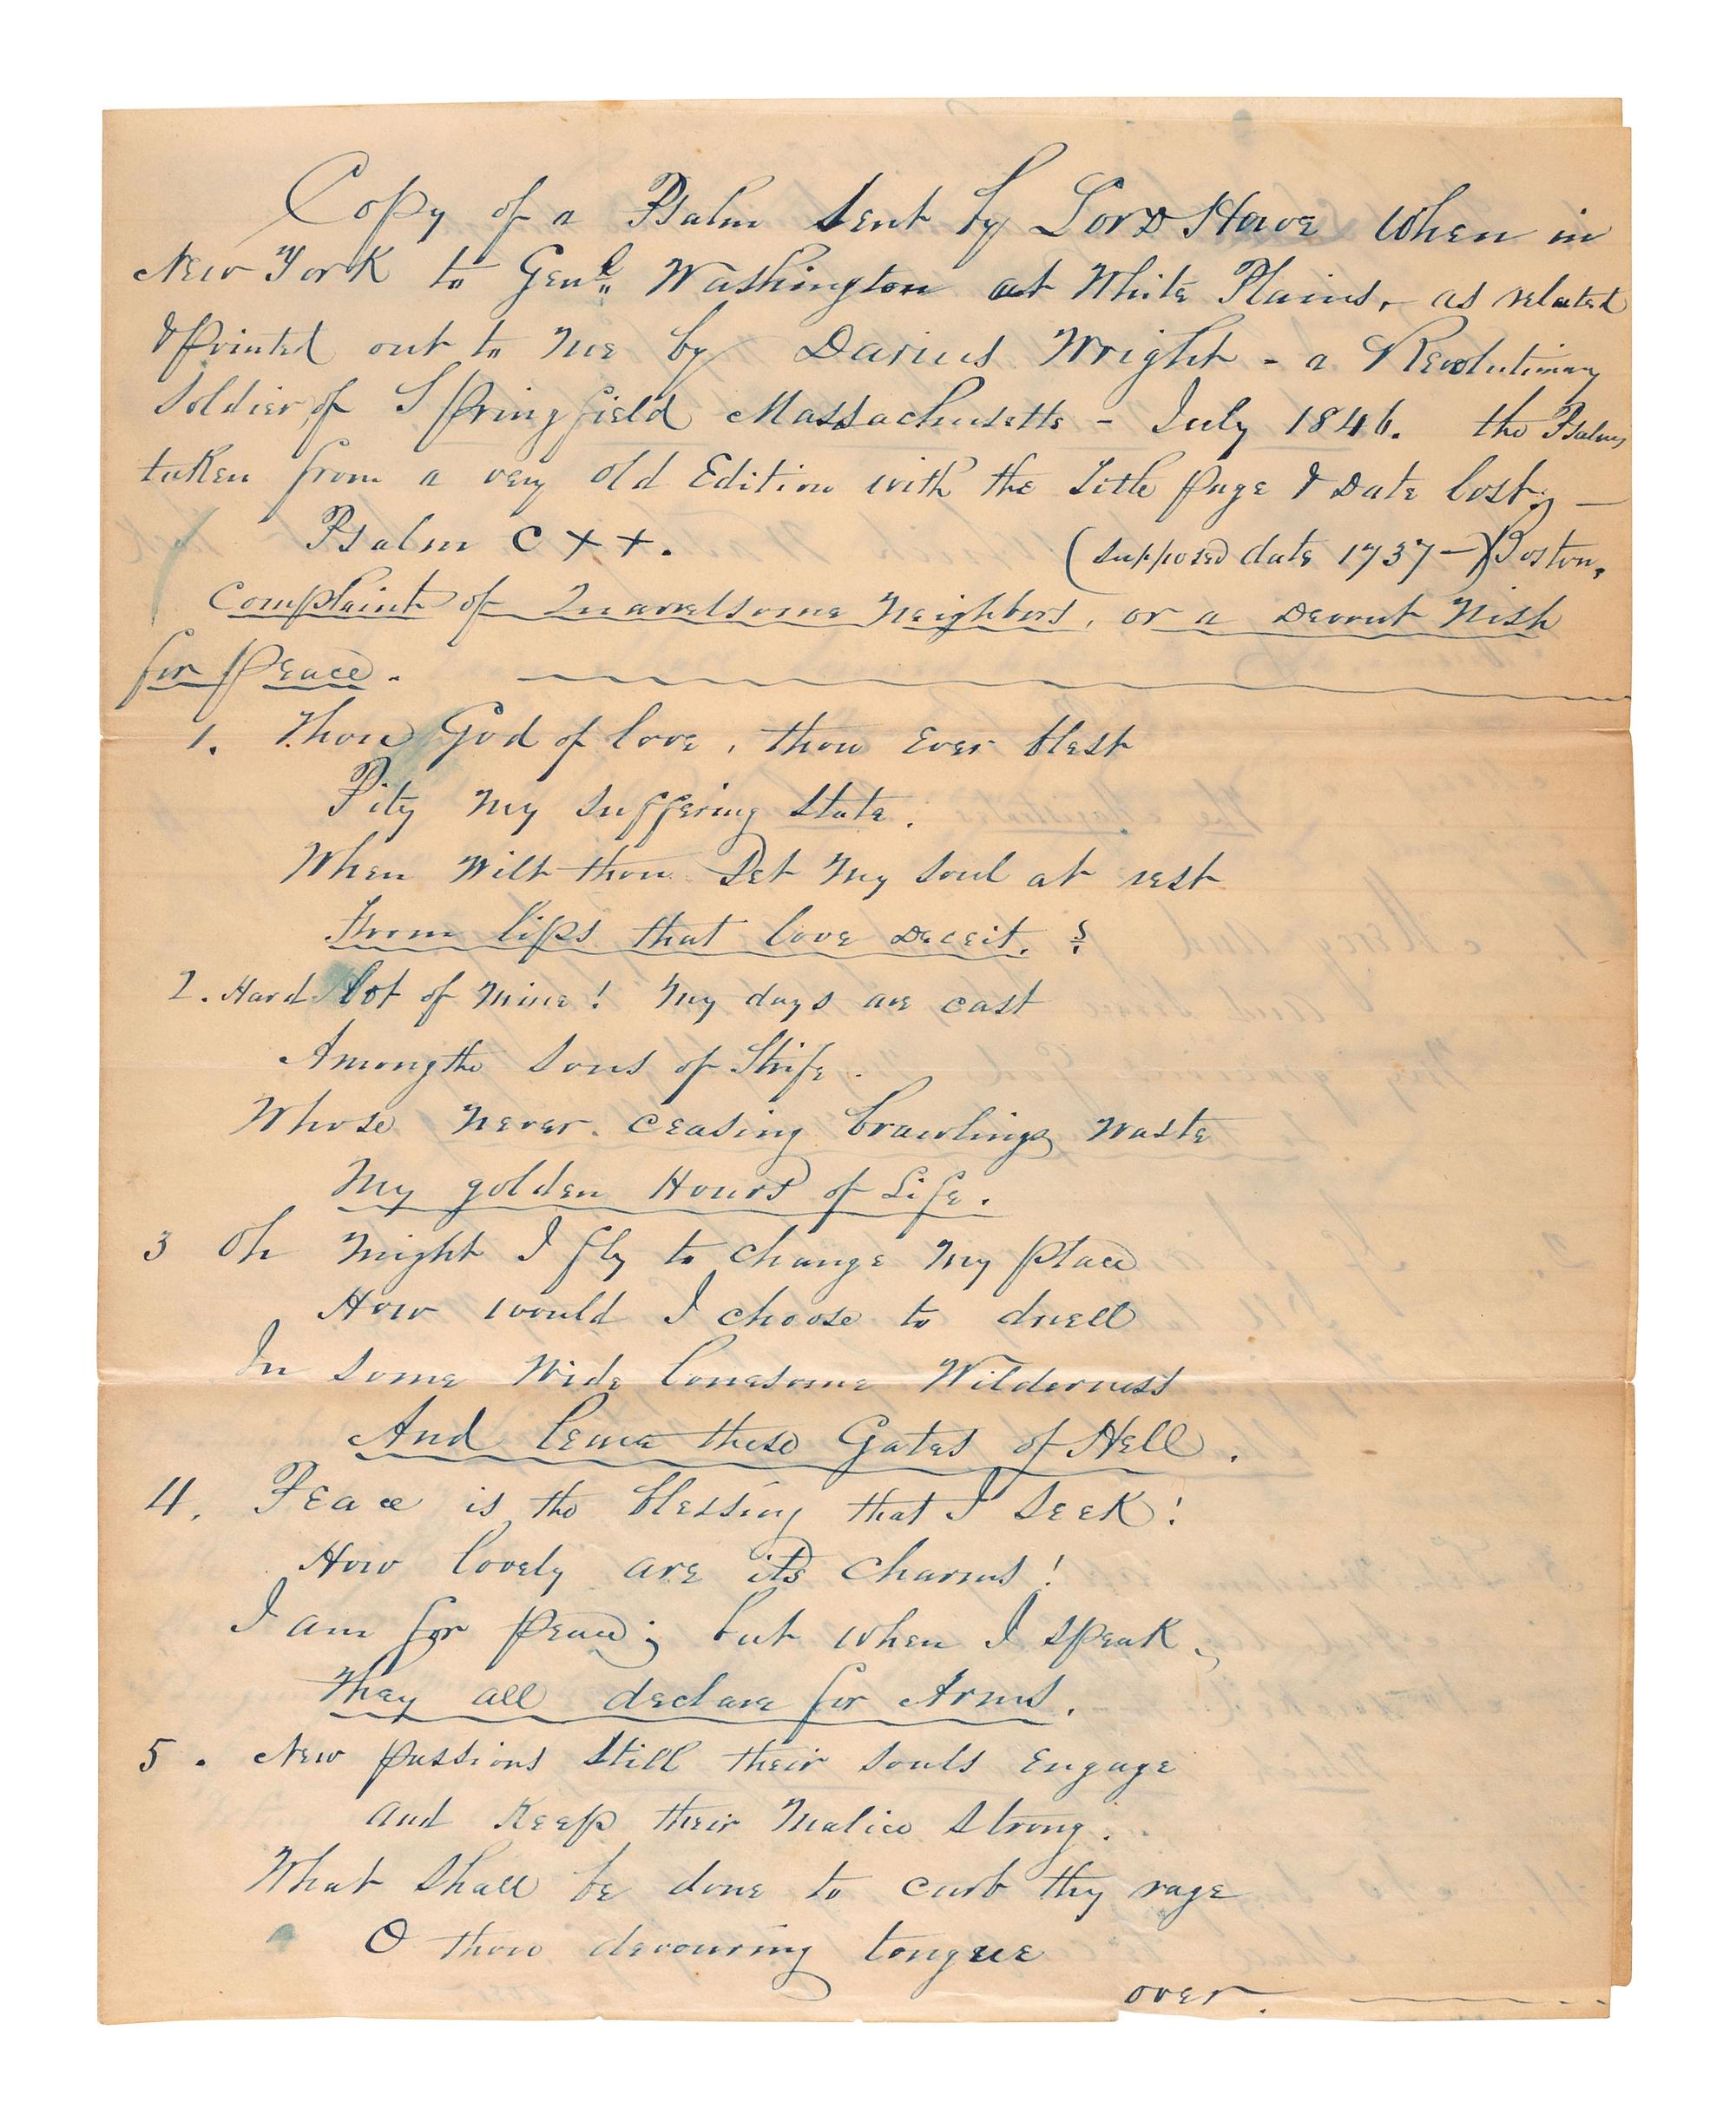 Copy of a Psalm sent by Lord Howe When in
New York to Genl. Washington at White Plains, as related
& printed out to me by Darius Wright - a Revolutionary
Soldier, of Springfield Massachusetts - July 1846. the Psalms
taken from a very old Edition with the Title page & Date lost; —
Psalm CXX. (supposed date 1737 —) Boston.
Complaint of Quarrelsome Neighbors, or a Devout Wish
for Peace.
1. Thou God of love, thou Ever blest
Pity my suffering state.
When Wilt thou Set my soul at rest
From lips that love Deceit. ?
2. Hard lot of mine! my days are cast
Among the sons of Strife.
Whose never ceasing brawlings waste
My golden Hours of Life.
3 Oh might I fly to change my place
How would I choose to dwell
In some Wide lonesome Wilderness
And leave these Gates of Hell.
4. Peace is the blessing that I seek!
How lovely are its charms!
I am for peace; but when I speak,
They all declare for Arms.
5. New passions still their souls Engage
and Keep their Malice strong.
What shall be done to curb thy rage
O thou devouring tongue
over. —